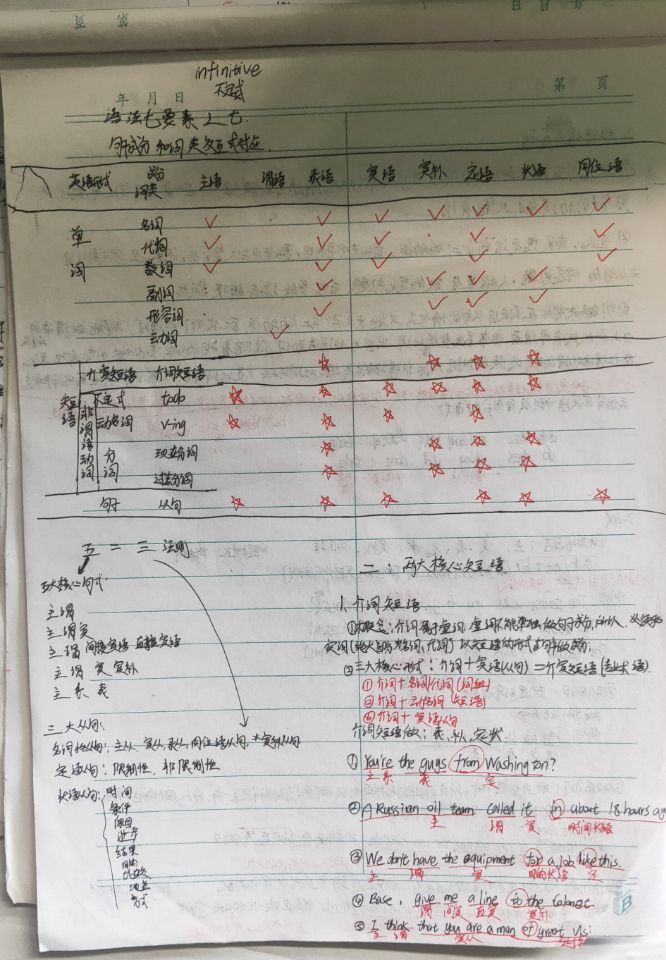 第 页
infinitive
不定式
年 月 日
语法七要素之七.
句成分和词类交互式对应.
英语形式 成份 词类 主语 谓语 表语 宾语 宾补 定语 状语 同位语
单词 名词 ✓ ✓ ✓ ✓ ✓ ✓ ✓
代词 ✓ ✓ ✓ ✓ ✓
数词 ✓ ✓ ✓ ✓
副词 ✓ ✓ ✓ ✓
形容词 ✓ ✓ ✓ ✓
动词 ✓
短语 介宾短语 介词短语 ☆ ☆ ☆ ☆
非谓语动词 不定式 to do ☆ ☆ ☆ ☆ ☆ ☆
动名词 v-ing ☆ ☆ ☆ ☆
分词 现在分词 ☆ ☆ ☆ ☆
过去分词 ☆ ☆ ☆ ☆
句子 从句 ☆ ☆ ☆ ☆ ☆ ☆
五二三法则
五大核心句式:
主谓
主谓宾
主谓间接宾语 直接宾语
主谓宾宾补
主系表
三大从句:
名词性从句: 主从, 宾从, 表从, 同位语从句, 宾补从句
定语从句: 限制性, 非限制性
状语从句: 时间
条件
原因
让步
结果
目的
比较
地点
方式
二: 两大核心短语
1. 介词短语
①概念: 介词属于虚词, 虚词不能单独做句子成份, 所以,
实词(绝大部分为名词, 代词) 以短语的形式
②三大核心形式: 介词+宾语(从句) = 介宾短语
①介词+名词/代词(词组)
②介词+动名词(短语)
③介词+宾语从句
介词短语做: 表, 补, 定, 状
① You're the guys from Washington?
主 系 表 定
② A Russian oil team called it in about 18 hours ag
主 谓 宾 时间状语
③ We don't have the equipment for a job like this.
主 谓 宾 目的状语 定
④ Base, give me a line to the
谓 间宾 直宾 宾补
⑤ I think that you are a man of great visi
主 谓 宾从 定语
B